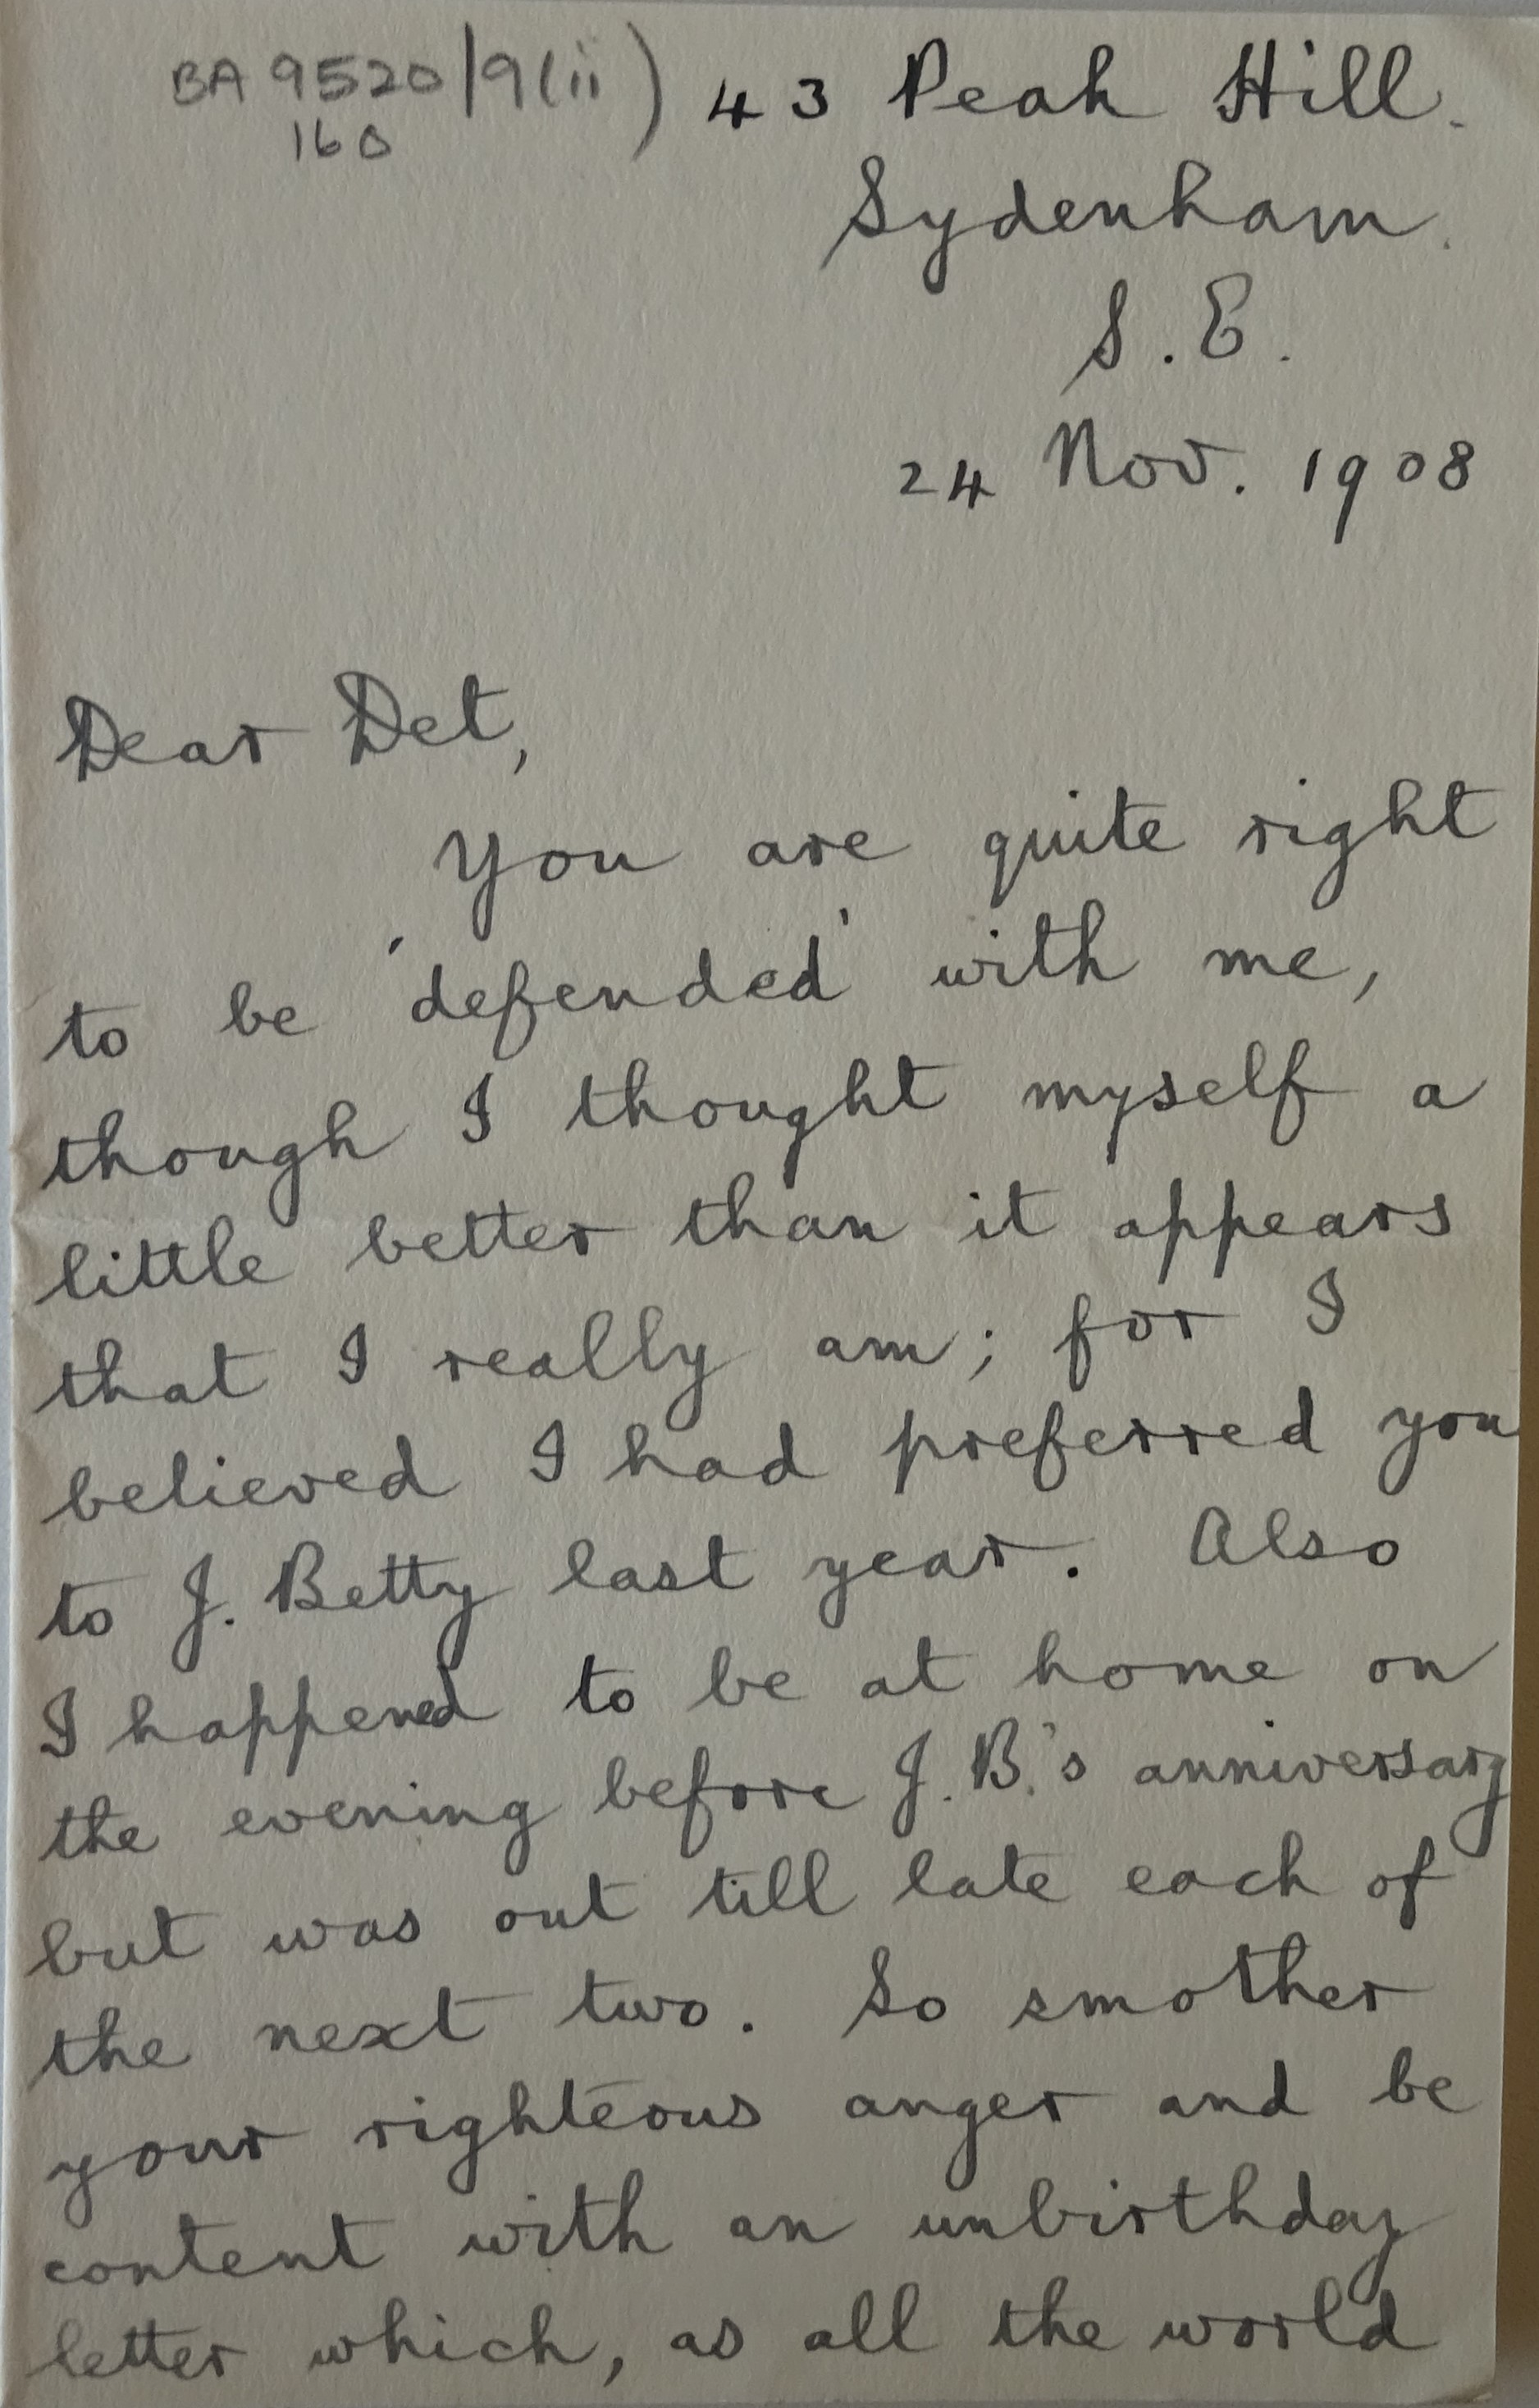 BA 9520/9(ii)
160
43 Peak Hill.
Sydenham.
S.E.
24 Nov. 1908
Dear Det,
You are quite right
to be 'defended' with me,
though I thought myself a
little better than it appears
that I really am; for I
believed I had preferred you
to J. Betty last year. Also
I happened to be at home on
the evening before J.B.'s anniversary
but was out till late each of
the next two. So smother
your righteous anger and be
content with an unbirthday
letter which, as all the world